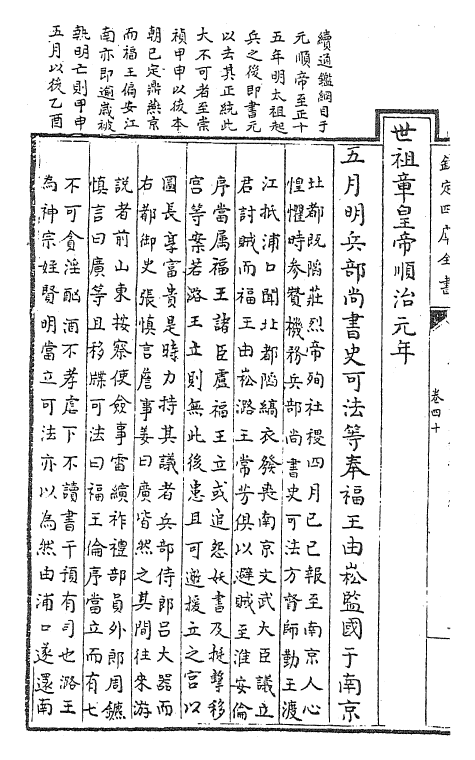 欽定四庫全書
卷四十
續通鑑綱目于
元順帝至正十
五年明太祖起
兵之後即書元
以去其正統此
大不可者至崇
禎甲申以後本
朝已定鼎燕京
而福王偏安江
南亦即適歲被
執明亡則甲申
五月以後乙酉
世祖章皇帝順治元年
五月明兵部尚書史可法等奉福王由崧監國于南京
北都既陷莊烈帝殉社稷四月己巳報至南京人心
惶懼時參贊機務兵部尚書史可法方督師勤王渡
江抵浦口聞北都陷縞衣發喪南京文武大臣議立
君討賊而福王由崧潞王常芳俱以避賊至淮安倫
序當属福王諸臣慮福王立或追怨妖書及挺擊移
宮等案若潞王立則無此後患且可邀援立之宮以
圖長享富貴是時力持其議者兵部侍郎呂大器而
右都御史張慎言詹事姜曰廣皆然之其間往來游
說者前山東按察使僉事雷縯祚禮部員外郎周鑣
慎言曰廣等且移牒可法曰福王倫序當立而有七
不可貪淫酗酒不孝虐下不讀書干預有司也潞王
為神宗姪賢明當立可法亦以為然由浦口遂還南